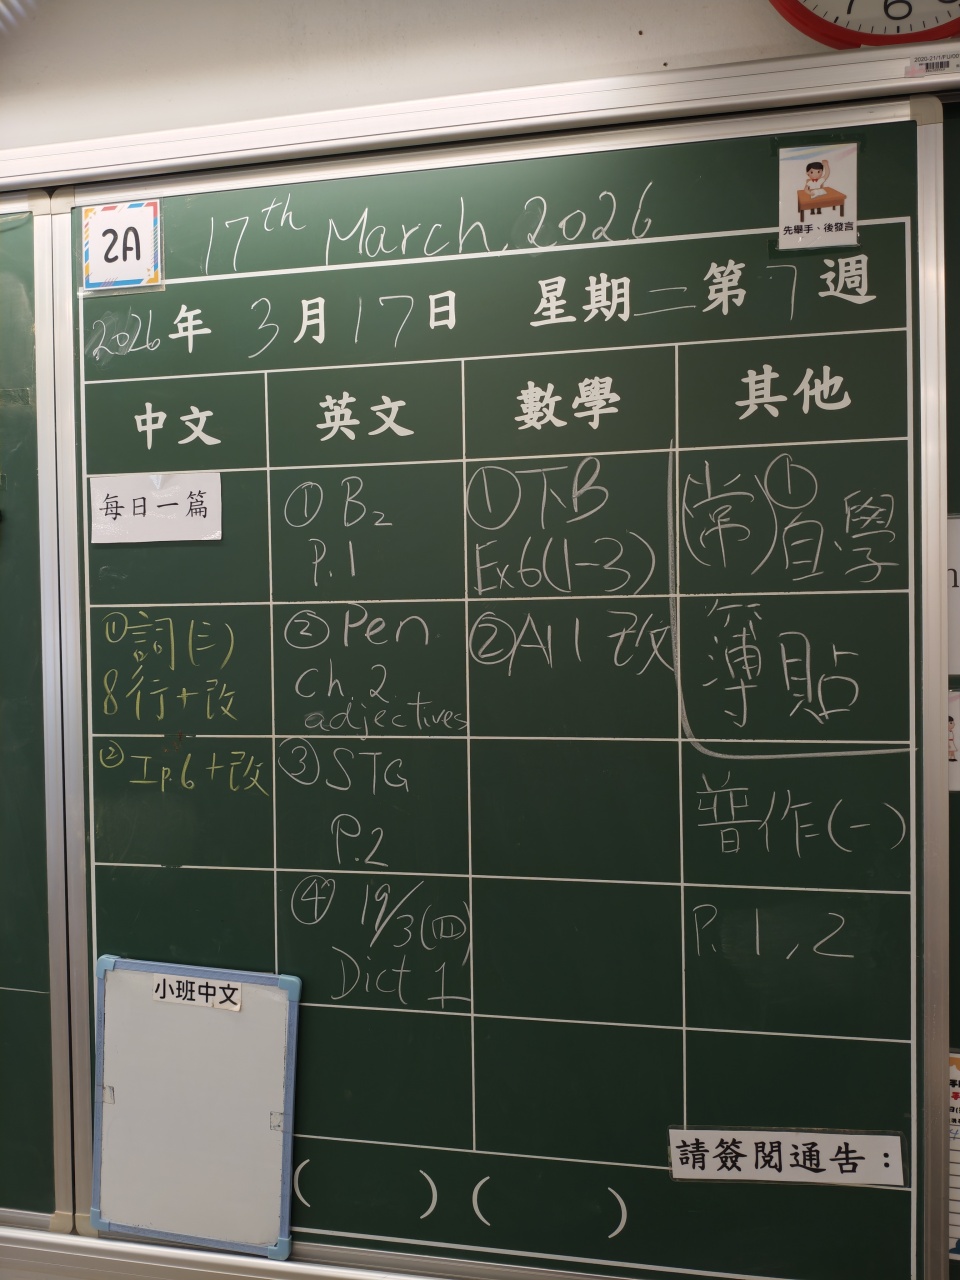 2A
17th March, 2026
先舉手、後發言
2026年 3月17日 星期二第7週
中文
英文
數學
其他
每日一篇
① 詞(三)
8行+改
② 工p.6+改
① B2
P.1
② Pen
Ch.2
adjectives
③ STG
P.2
④ 19/3(四)
Dict 1
① 下B
Ex6(1-3)
② All 改
(常)①
自學
簿貼
普作(一)
P.1,2
小班中文
請簽閱通告：
( ) ( )